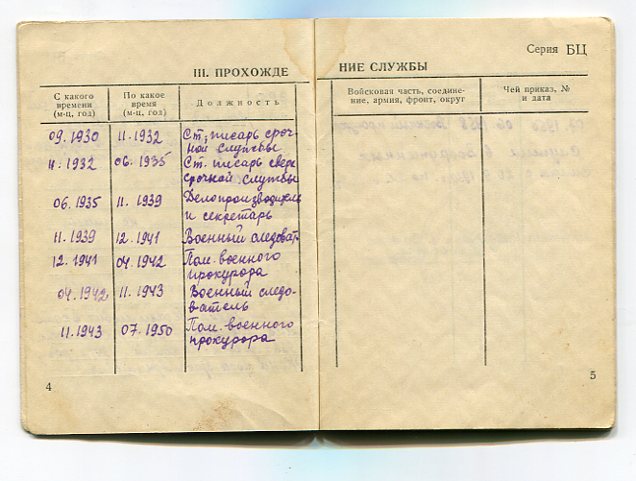 Серия БЦ
III. ПРОХОЖДЕ НИЕ СЛУЖБЫ
С какого времени (м-ц, год)
По какое время (м-ц, год)
Должность
Войсковая часть, соедине-
ние, армия, фронт, округ
Чей приказ, №
и дата
09.1930 11.1932 Ст. писарь сроч-
ной службы
11.1932 06.1935 Ст. писарь сверх
срочной службы
06.1935 11.1939 Делопроизводитель
и секретарь
11.1939 12.1941 Военный следоват.
12.1941 04.1942 Пом. военного
прокурора
04.1942 11.1943 Военный следо-
ватель
11.1943 07.1950 Пом. военного
прокурора
4
5